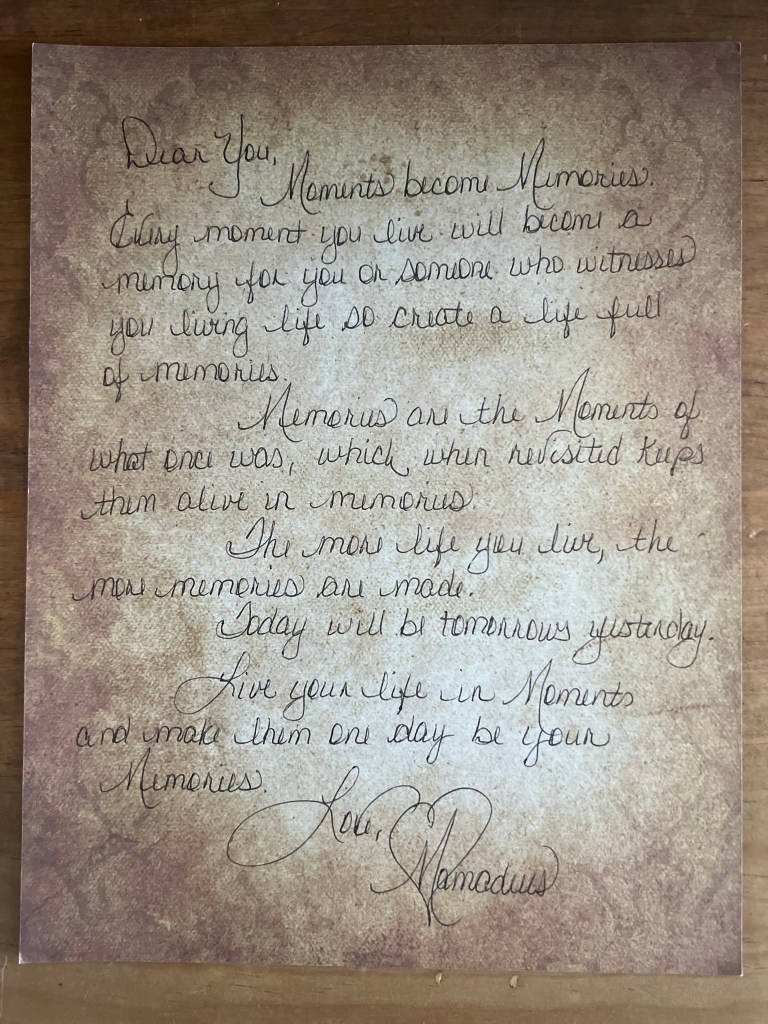 Dear You,
Moments become Memories.
Every moment you live will become a
memory for you or someone who witnesses
you living life so create a life full
of memories.
Memories are the Moments of
what once was, which, when revisited keeps
them alive in memories.
The more life you live, the
more memories are made.
Today will be tomorrows yesterday.
Live your life in Moments
and make them one day be your
Memories.
Love,